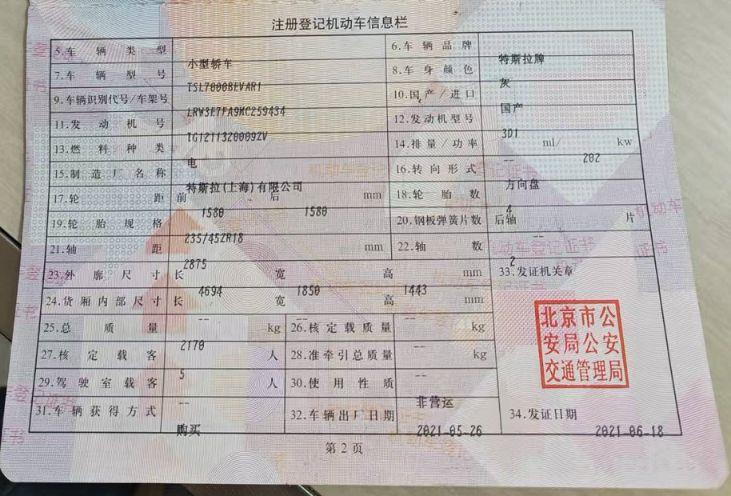 注册登记机动车信息栏
5.车辆类型 小型轿车 6.车辆品牌 特斯拉牌
7.车辆型号 TSL7000BEVAR1 8.车身颜色 灰
9.车辆识别代号/车架号 LRW3E7FA9MC259434 10.国产/进口 国产
11.发动机号 TG1211320009ZV 12.发动机型号 3D1
13.燃料种类 电 14.排量/功率 -- ml/ 202 kw
15.制造厂名称 特斯拉(上海)有限公司 16.转向形式 方向盘
17.轮距 前 1580 后 1580 mm 18.轮胎数 4
19.轮胎规格 235/45ZR18 20.钢板弹簧片数 后轴 -- 片
21.轴距 2875 mm 22.轴数 2
23.外廓尺寸 长 4694 宽 1850 高 1443 mm 33.发证机关章
24.货厢内部尺寸 长 -- 宽 -- 高 -- mm
北京市公
安局公安
交通管理局
25.总质量 2170 kg 26.核定载质量 -- kg
27.核定载客 5 人 28.准牵引总质量 -- kg
29.驾驶室载客 -- 人 30.使用性质 非营运
31.车辆获得方式 购买 32.车辆出厂日期 2021-05-26 34.发证日期 2021-06-18
第2页